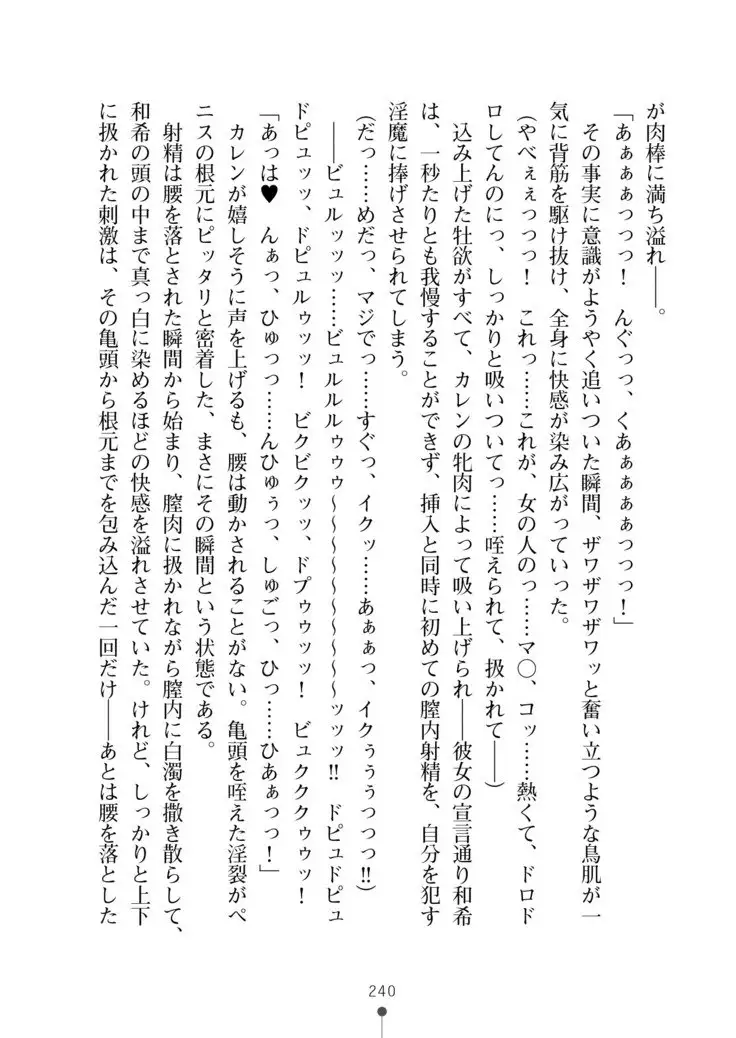 が肉棒に満ち溢れ――。
「あぁぁぁっっっ！　んぐっっ、くあぁぁぁぁっっっ！」
その事実に意識がようやく追いついた瞬間、ザワザワザワッと奮い立つような鳥肌が一
気に背筋を駆け抜け、全身に快感が染み広がっていった。
(やべぇぇっっっ！　これっ……これが、女の人のっ……マ〇、コッ……熱くて、ドロド
ロしてんのにっ、しっかりと吸いついてっ……咥えられて、扱かれて――)
込み上げた牡欲がすべて、カレンの牝肉によって吸い上げられ――彼女の宣言通り和希
は、一秒たりとも我慢することができず、挿入と同時に初めての膣内射精を、自分を犯す
淫魔に捧げさせられてしまう。
(だっ……めだっ、マジでっ……すぐっ、イクッ……あぁぁっ、イクぅぅぅっっっ!!)
――ビュルッッッ……ビュルルルゥゥゥ～～～～～～～～ッッッ!!　ドピュドピュ
ドピュッッ、ドピュルゥッッ！　ビクビクッッ、ドプゥゥッッ！　ビュククゥゥッ！
「あっは♥　んぁっ、ひゅっっ……んひゅぅっ、しゅごっ、ひっ……ひあぁっっ！」
カレンが嬉しそうに声を上げるも、腰は動かされることがない。亀頭を咥えた淫裂がペ
ニスの根元にピッタリと密着した、まさにその瞬間という状態である。
射精は腰を落とされた瞬間から始まり、膣肉に扱かれながら膣内に白濁を撒き散らして、
和希の頭の中まで真っ白に染めるほどの快感を溢れさせていた。けれど、しっかりと上下
に扱かれた刺激は、その亀頭から根元までを包み込んだ一回だけ――あとは腰を落とした
240